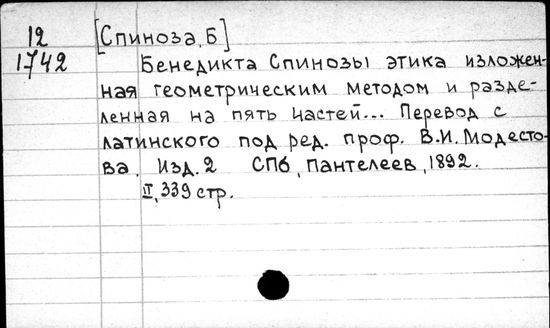 12 [Спиноза, Б]
1742 Бенедикта Спинозы этика изложен-
ная геометрическим методом и разде-
ленная на пять частей... Перевод с
латинского под ред. проф. В.И. Модесто-
ва. Изд. 2 СПб, Пантелеев, 1892.
II, 339 стр.